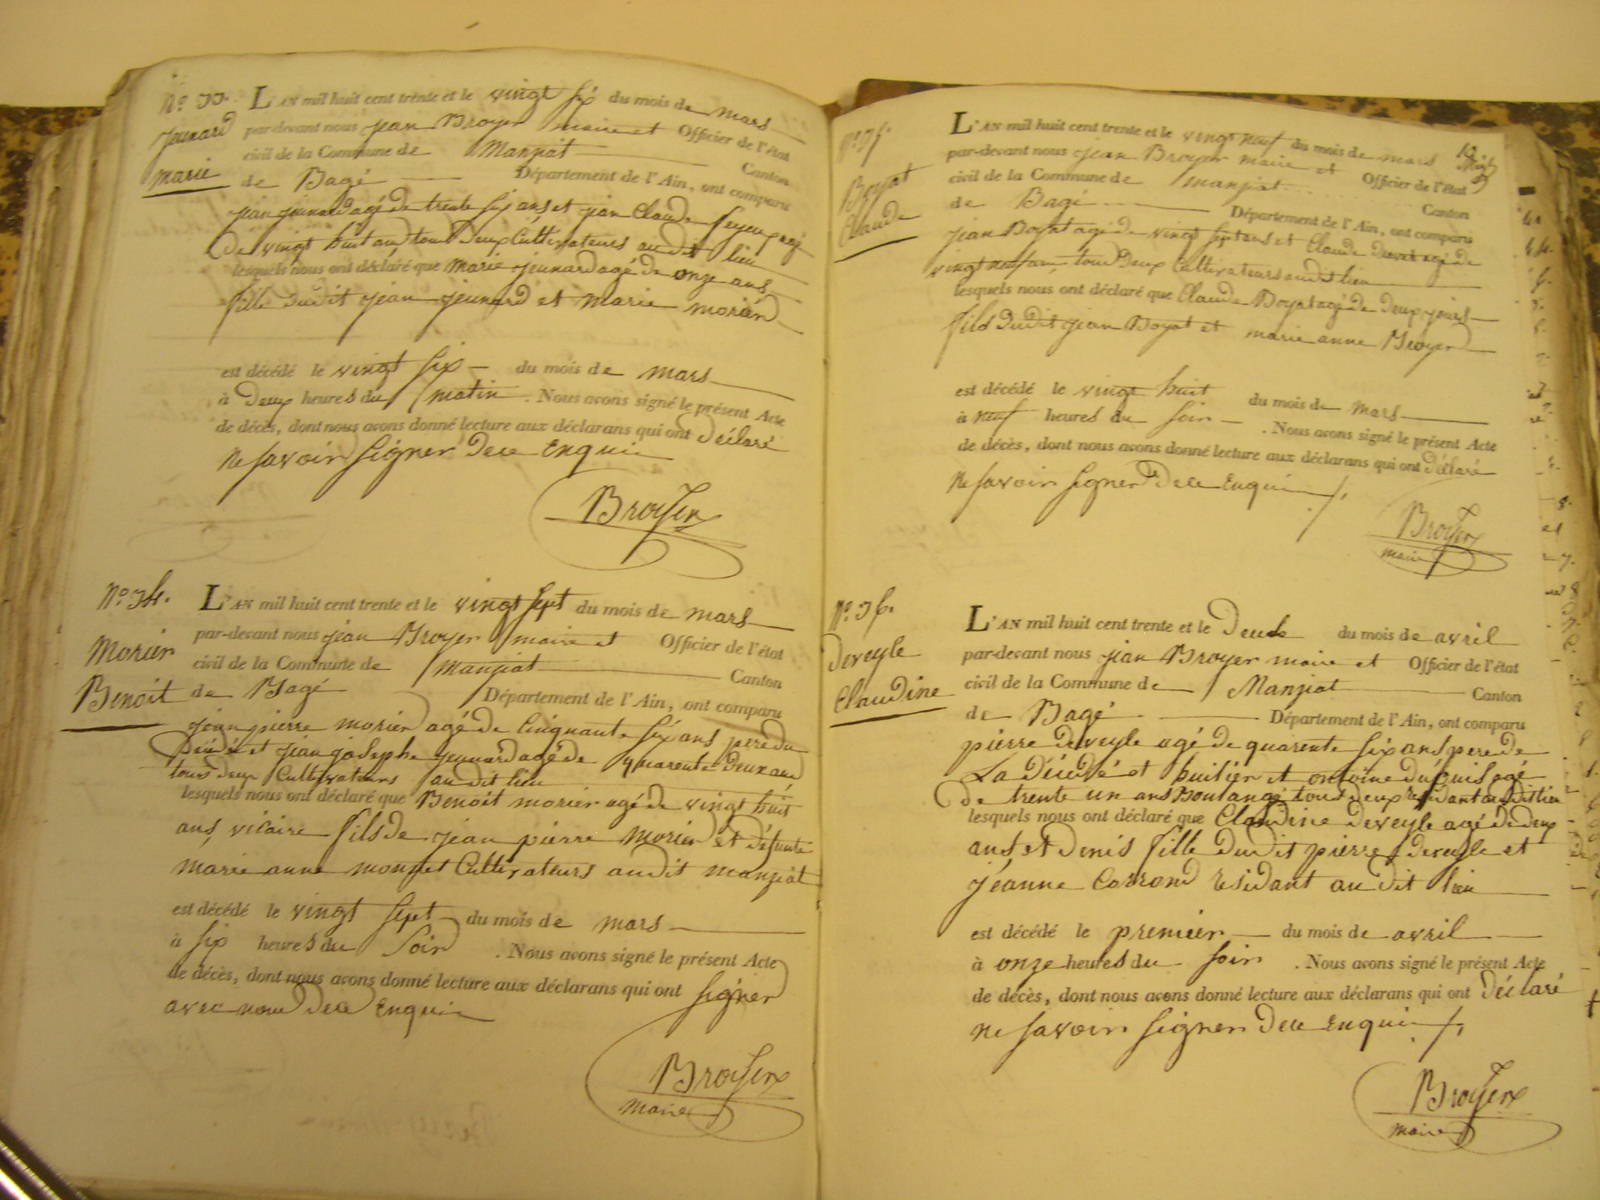 N° 33.
Jeunard
Marie
L'AN mil huit cent trente et le vingt six du mois de mars
par-devant nous jean Broyer maire et Officier de l'état
civil de la Commune de Manziat Canton
de Bagé Département de l'Ain, ont comparu
jean jeunard agé de trente six ans et jean Claude
de vingt huit ans tous deux Cultivateurs audit lieu
lesquels nous ont déclaré que marie jeunard agé de onze ans
fille dudit jean jeunard et marie morier
est décédé le vingt six du mois de mars
à deux heures du matin. Nous avons signé le présent Acte
de décès, dont nous avons donné lecture aux déclarans qui ont déclaré
ne savoir signer de ce Enquis
Broyer
N° 34.
Morier
Benoit
L'AN mil huit cent trente et le vingt sept du mois de mars
par-devant nous jean Broyer maire et Officier de l'état
civil de la Commune de Manziat Canton
de Bagé Département de l'Ain, ont comparu
jean pierre morier agé de Cinquante six ans pere du
décédé et jean josephe jeunard agé de quarente deux ans
tous deux Cultivateurs audit lieu
lesquels nous ont déclaré que Benoit morier agé de vingt huit
ans, fils de jean pierre morier et défunte
marie anne monget Cultivateurs audit manziat
est décédé le vingt sept du mois de mars
à six heures du soir. Nous avons signé le présent Acte
de décès, dont nous avons donné lecture aux déclarans qui ont signer
avec nous de ce Enquis
Broyer
maire
N° 35.
Boyat
Claude
L'AN mil huit cent trente et le vingt neuf du mois de mars
par-devant nous jean Broyer maire et Officier de l'état
civil de la Commune de manziat Canton
de Bagé Département de l'Ain, ont comparu
jean Boyat agé de vingt sept ans et Claude agé de
vingt neuf ans, tous deux Cultivateurs audit lieu
lesquels nous ont déclaré que Claude Boyat agé de deux jours
fils dudit jean Boyat et marie anne Broyer
est décédé le vingt huit du mois de mars
à neuf heures du soir. Nous avons signé le présent Acte
de décès, dont nous avons donné lecture aux déclarans qui ont déclaré
ne savoir signer de ce Enquis
Broyer
maire
N° 36.
Deveyle
Claudine
L'AN mil huit cent trente et le Deux du mois de avril
par-devant nous jean Broyer maire et Officier de l'état
civil de la Commune de Manziat Canton
de Bagé Département de l'Ain, ont comparu
pierre deveyle agé de quarente six ans pere de
La décédé et huilier et antoine dupuis agé
de trente un ans Boulangé tous deux residant audit lieu
lesquels nous ont déclaré que Claudine deveyle agé de deux
ans et demis fille dudit pierre deveyle et
jeanne Corrond residant audit lieu
est décédé le premier du mois de avril
à onze heures du soir. Nous avons signé le présent Acte
de décès, dont nous avons donné lecture aux déclarans qui ont déclaré
ne savoir signer de ce Enquis
Broyer
maire